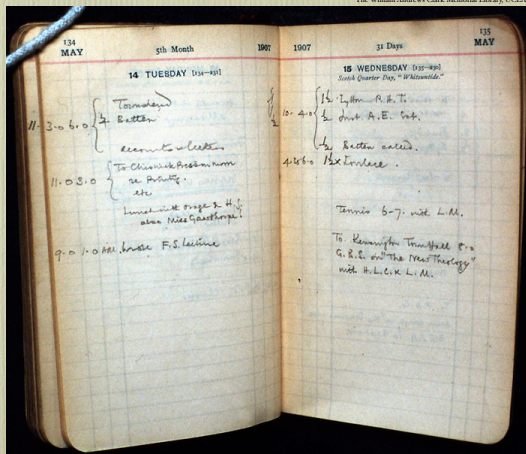 The William Andrews Clark Memorial Library, UCLA
134
MAY
5th Month
1907
14 TUESDAY [134—231]
Townshend
½ Batten
accounts & letters
To Chiswick Press in morn
re Printing.
etc
Lunch with Orage & H.J.
also Miss Gawthorpe
9.0 1.0 AM. house F.S. Lecture
1907
31 Days
135
MAY
15 WEDNESDAY [135—230]
Scotch Quarter Day, "Whitsuntide."
10. 4.0
1½ Lytton R.H.T.
½ Inst. A.E. Ext.
½ Batten called.
1½ x Lovelace.
Tennis 6-7. with L.M.
To Kensington Town Hall 8.0
G.B.S. on "The New Theology"
with H.L.C. & L.M.